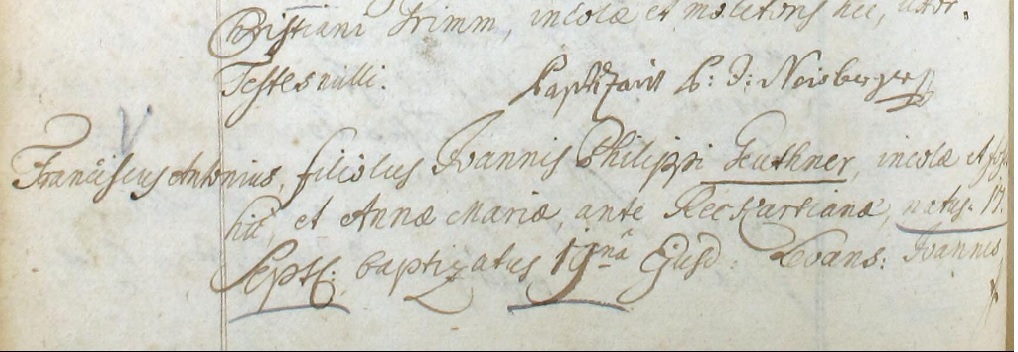 Christiani Grimm, incolæ et molitoris hic, uxor.
Testes nulli. Baptizavit P: J: Neisberger
Franciscus Antonius, filiolus Joannis Philippi Geuthner, incolæ et
hic, et Annæ Mariæ, ante Reckartianæ, natus 17.
Septb: baptizatus 19nâ Ejusd: Levans: Joannis